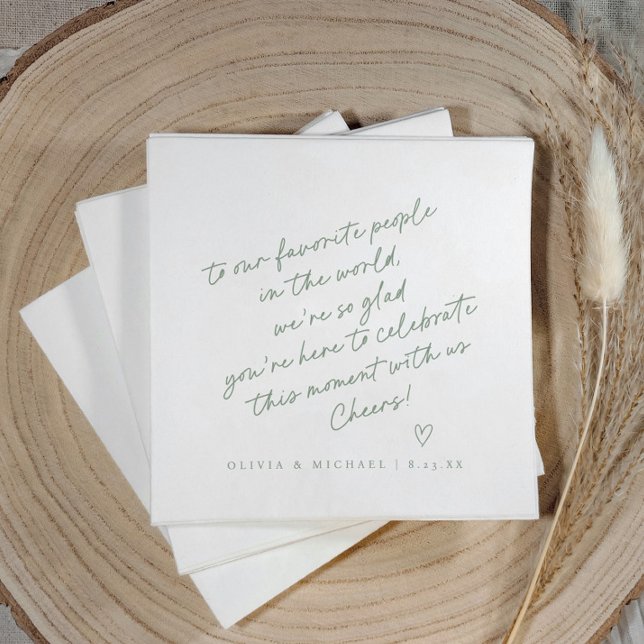 to our favorite people
in the world,
we're so glad
you're here to celebrate
this moment with us
Cheers!
OLIVIA & MICHAEL | 8.23.XX